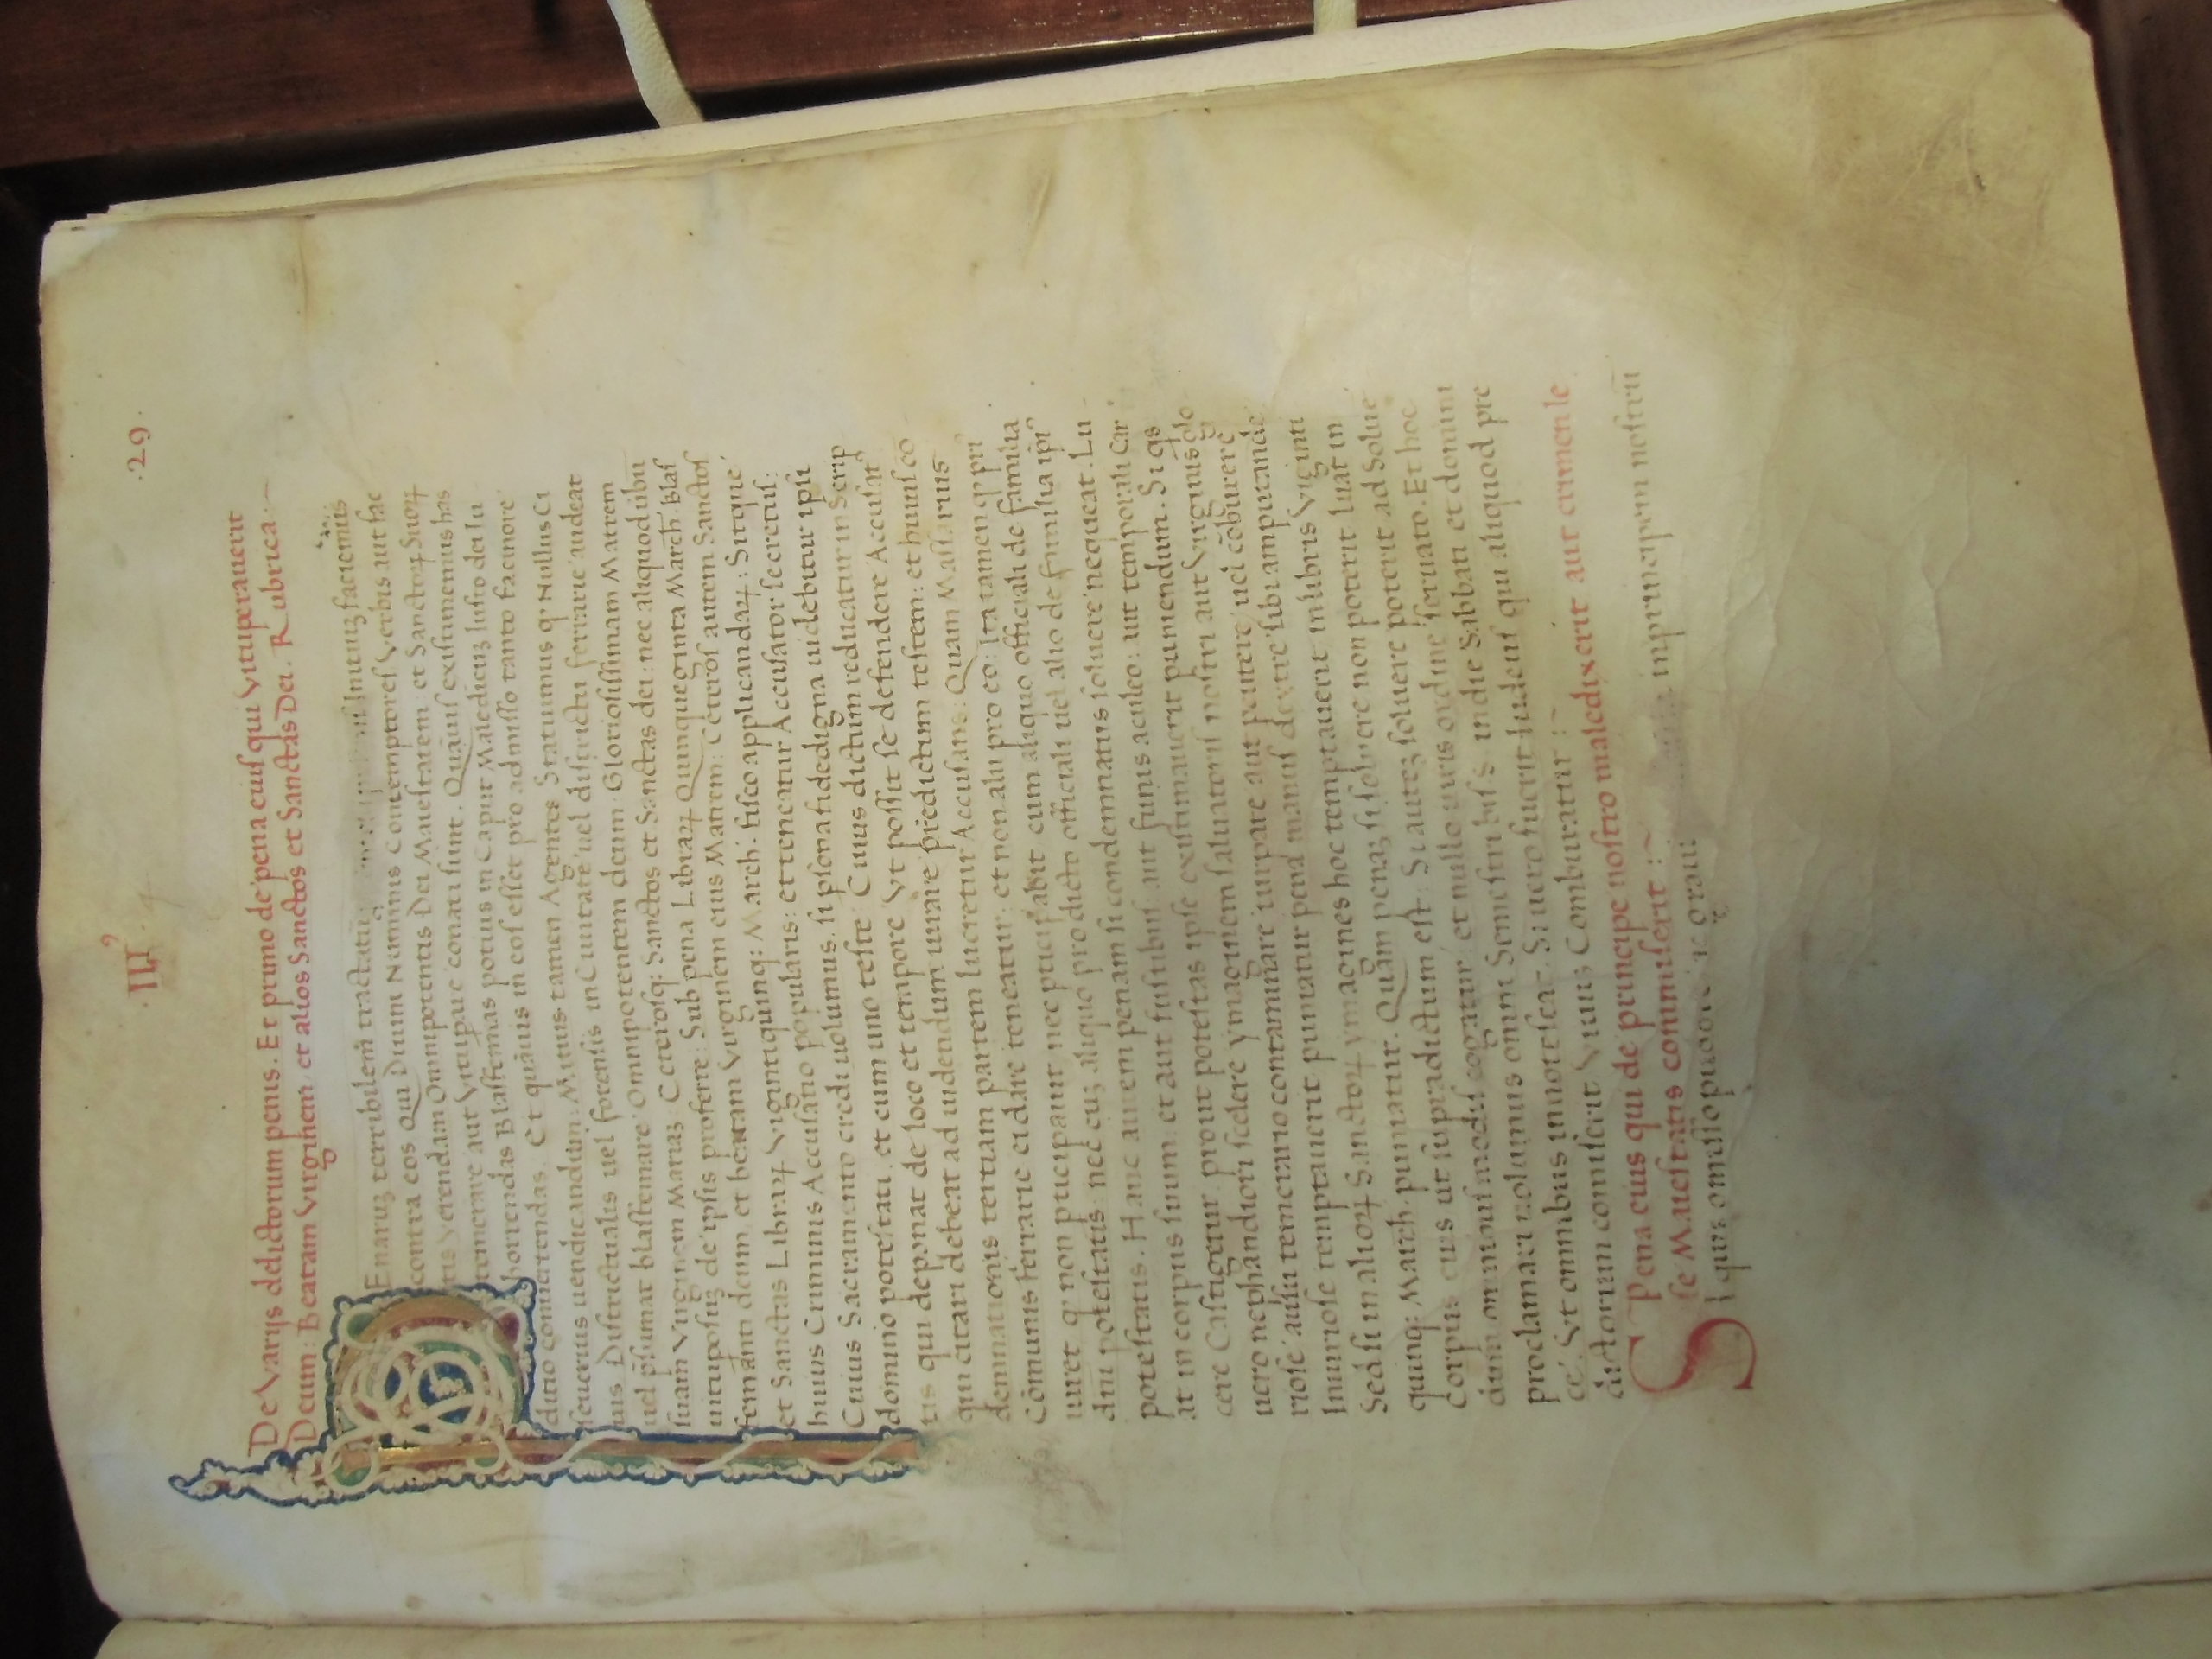 .IIII. .29.
De Varijs delictorum penis. Et primo de pena eiuſ qui vituperauerit
Deum: Beatam Virginem et alios Sanctos et Sanctas Dei. Rubrica
Enaruz terribilem̄ tractatuȝ Inituȝ faciemus
contra eos Qui Diuini Numinis Contemptoreſ Verbis aut fac
tis Verendam Omnipotentis Dei Maieſtatem et Sanctoꝝ Suoꝝ
temerare aut Vitupare conati ſunt. Quāuiſ exiſtimemus has
horrendas Blaſfemias potius in Caput Maledicuȝ Iuſto dei Iu
ditio conuertendas. Et quāuis in eoſ eſſet pro admiſſo tanto facinore
ſeuerius uendicandum: Mitius tamen Agentes Statuimus ꝙ Nullus Ci
uis Diſtrictualis uel forenſis in Ciuitate uel diſtrictu ferrarie audeat
uel p̄ſumat blaſfemare Omnipotentem deum: Glorioſiſſimam Matrem
ſuam Virginem Mariaȝ Ceteroſqȝ Sanctos et Sanctas dei: nec aliquod
uituꝑoſuȝ de ipſis proferre: Sub pena Libraꝝ Quinqueginta March. Blaſ
femanti deum, et beatam Virginem eius Matrem: Ceteroſ autem Sanctoſ
et Sanctas Libraꝝ Vigintiquinqȝ: March. fiſco applicandaꝝ: Sitque
huius Criminis Accuſatio popularis: et teneatur Accuſator ſecretuſ:
Cuius Sacramento credi uolumus. ſi ꝑſona fidedigna uidebitur ipſi
domino poteſtati. et cum uno teſte Cuius dictum reducatur in Scrip
tis qui deponat de loco et tempore Vt poſſit ſe defendere Accuſatꝰ
qui citari debeat ad uidendum iurare predictum teſtem: et huiuſ co
demnationis tertiam partem lucretur Accuſans: Quam Maſſarius
Cōmunis ferrarie ei dare teneatur: et non alij pro eo: Ita tamen ꝙ pri
iuret ꝙ non ꝑticipauit nec ꝑticipabit cum aliquo officiali de familia
dni poteſtatis: nec cuȝ aliquo pro dicto officiali uel alio de familia ipiꝰ
poteſtatis. Hanc autem penam ſi condemnatus ſoluere nequeat. Lu
at in corpus ſuum et aut fuſtibuſ aut funis aculeo: aut temporali Car
cere Caſtigetur prout poteſtas ipſe exiſtimauerit puniendum. Si qs
uero nephandiori ſcelere ymaginem ſaluatoriſ noſtri aut Virginis glo
rioſe auſu temerario contaminare turpare aut percutere uel cōburere
Iniurioſe temptauerit puniatur pena manus dextre ſibi amputande
Sed ſi in alioꝝ Sanctoꝝ ymagines hoc temptauerit in libris Viginti
quinqȝ March. puniatur. Quam penaȝ ſi ſoluere non poterit luat in
Corpus eius ut ſupradictum eſt: Si auteȝ ſoluere poterit ad Solue
dum omnibuſ modis cogatur, et nullo iuris ordine ſeruato. Et hoc
proclamari uolumus omni Semeſtri biſ: in die Sabbati et domini
ce. Vt omnibus innoteſcat. Si uero fuerit Iudeuſ qui aliquod pre
dictorum comiſerit Viuus Comburatur
Pena eius qui de principe noſtro maledixerit aut crimen le
ſe Maieſtatis commiſerit
Si quis in principem noſtrū